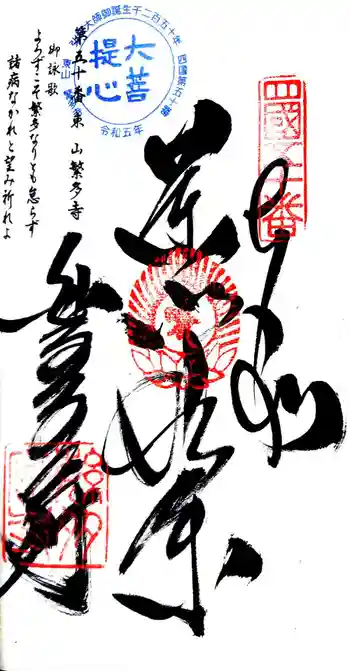 四國五十番
奉拝
薬師如来
繁多寺
弘法大師御誕生千二百五十年
四国第五十番
大菩提心
令和五年
第五十番東山繁多寺
御詠歌
よろずこそ繁多なりとも怠らず
諸病なかれと望み祈れよ